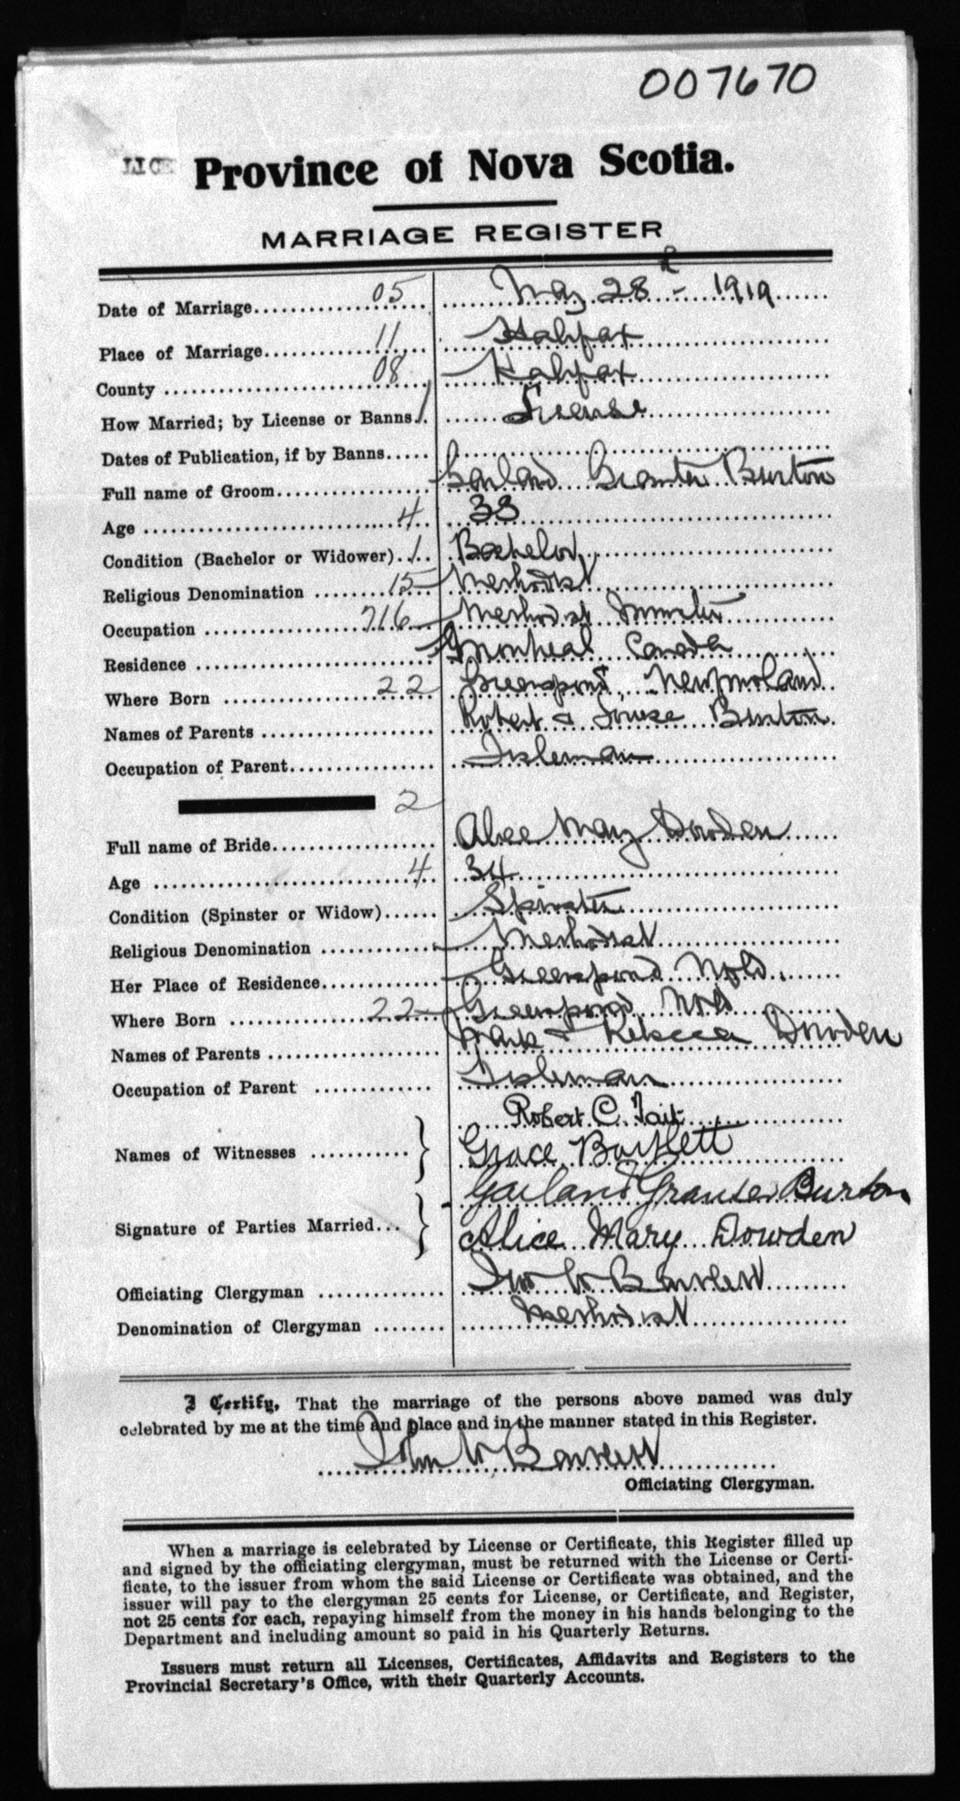 007670
LICE
Province of Nova Scotia.
MARRIAGE REGISTER
Date of Marriage 05 May 28th - 1919
Place of Marriage 11 Halifax
County 08 Halifax
How Married; by License or Banns 1 License
Dates of Publication, if by Banns
Full name of Groom Garland Burton
Age 4 33
Condition (Bachelor or Widower) 1 Bachelor
Religious Denomination 15 Methodist
Occupation 716 Methodist Minister
Residence Montreal Canada
Where Born 22 Greenspond, Newfoundland
Names of Parents Robert & Louise Burton
Occupation of Parent Fisherman
2
Full name of Bride Alice May Dowden
Age 4 34
Condition (Spinster or Widow) Spinster
Religious Denomination Methodist
Her Place of Residence Greenspond Nfld.
Where Born 22 Greenspond Nfld
Names of Parents Mark & Rebecca Dowden
Occupation of Parent Fisherman
Robert C. Tait
Names of Witnesses } Grace Bartlett
Garland Burton
Signature of Parties Married } Alice Mary Dowden
Officiating Clergyman Jno W Bartlett
Denomination of Clergyman Methodist
I Certify, That the marriage of the persons above named was duly
celebrated by me at the time and place and in the manner stated in this Register.
John W Bartlett
Officiating Clergyman.
When a marriage is celebrated by License or Certificate, this Register filled up
and signed by the officiating clergyman, must be returned with the License or Certi-
ficate, to the issuer from whom the said License or Certificate was obtained, and the
issuer will pay to the clergyman 25 cents for License, or Certificate, and Register,
not 25 cents for each, repaying himself from the money in his hands belonging to the
Department and including amount so paid in his Quarterly Returns.
Issuers must return all Licenses, Certificates, Affidavits and Registers to the
Provincial Secretary's Office, with their Quarterly Accounts.